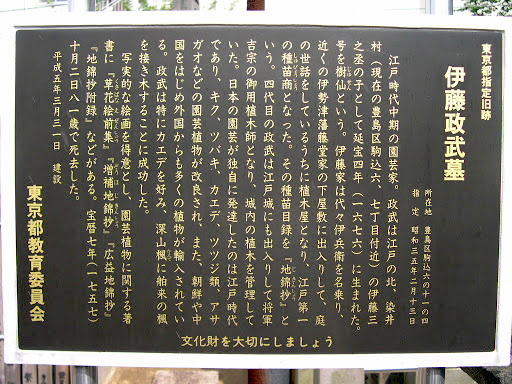 東京都指定旧跡
伊藤政武墓
所在地 豊島区駒込六の十一の四
指定 昭和三五年二月十三日
江戸時代中期の園芸家。政武は江戸の北、染井
村（現在の豊島区駒込六、七丁目付近）の伊藤三
之丞の子として延宝四年（一六七六）に生まれた。
号を樹仙という。伊藤家は代々伊兵衛を名乗り、
近くの伊勢津藩藤堂家の下屋敷に出入りして、庭
の世話をしているうちに植木屋となり、江戸第一
の種苗商となった。その種苗目録を『地錦抄』と
いう。四代目の政武は江戸城にも出入りして将軍
吉宗の御用植木師となり、城内の植木を管理して
いた。日本の園芸が独自に発達したのは江戸時代
であり、キク、ツバキ、カエデ、ツツジ類、アサ
ガオなどの園芸植物が改良され、また、朝鮮や中
国をはじめ外国からも多くの植物が輸入されてい
る。政武は特にカエデを好み、深山楓に舶来の楓
を接き木することに成功した。
写実的な絵画を得意とし、園芸植物に関する著
書に『草花絵前集』『増補地錦抄』『広益地錦抄』
『地錦抄附録』などがある。宝暦七年（一七五七）
十月二日八一歳で死去した。
平成五年三月三一日 建設
東京都教育委員会
文化財を大切にしましょう